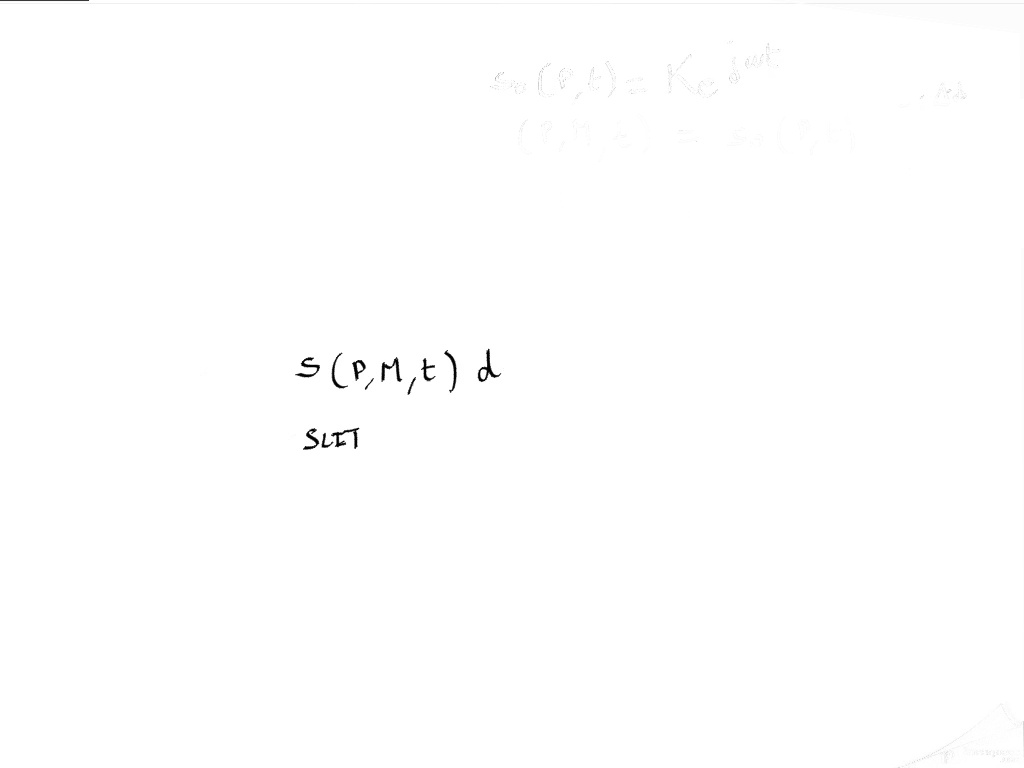 s₀(P,t) = K e^jωt
(P,M,t) = s₀(P,t
s(P,M,t) d
SLIT